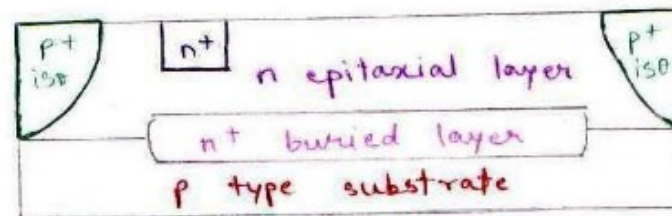 p+
iso
n+
n epitaxial layer
p+
iso
n+ buried layer
p type substrate